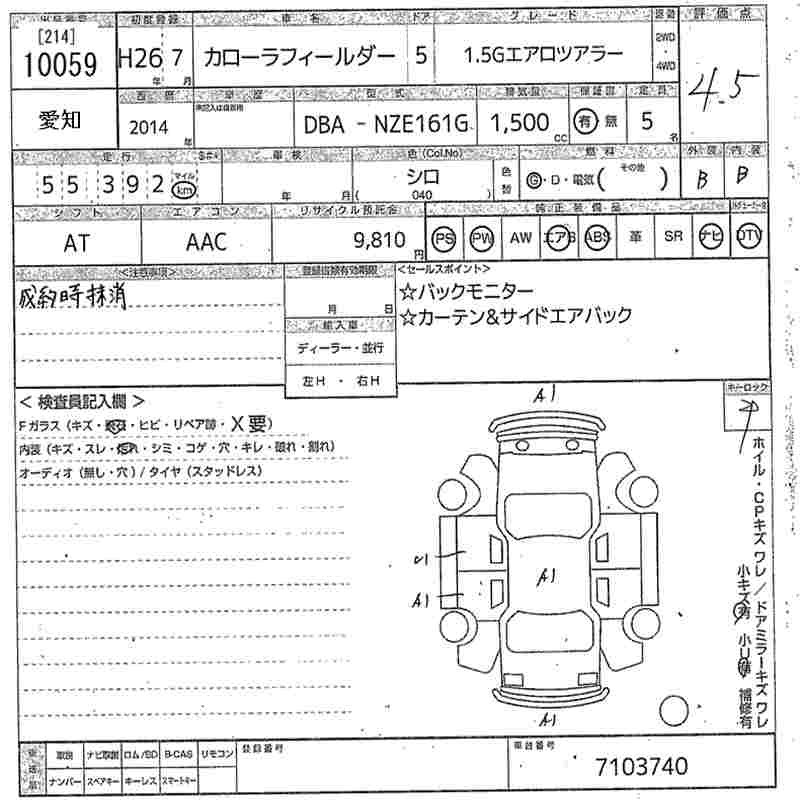 出品番号 初度登録 車名 ドア グレード 駆動 評価点
[214]
10059 H26年 7月 カローラフィールダー 5 1.5Gエアロツアラー 2WD・4WD 4.5
愛知
西暦 車歴 型式 排気量 保証書 定員
2014年 DBA - NZE161G 1,500cc 有 無 5名
走行 車検 色(Col.No) 燃料 外装 内装
55392 マイル km 年 月 シロ (040) 色替 G・D・電気( その他 ) B B
シフト エアコン リサイクル預託金 純正装備品
AT AAC 9,810円 PS PW AW エアB ABS 革 SR ナビ DTV
<注意事項>
成約時抹消
登録書類有効期限
月 日
輸入車
ディーラー・並行
左H ・ 右H
<セールスポイント>
☆バックモニター
☆カーテン&サイドエアバック
キーロック
< 検査員記入欄 >
Fガラス(キズ・・ヒビ・リペア跡・X要)
内装(キズ・スレ・汚れ・シミ・コゲ・穴・キレ・破れ・割れ)
オーディオ(無し・穴)/タイヤ(スタッドレス)
A1
U1
A1
A1
A1
ホイル・CPキズワレ/ドアミラーキズワレ
小キズ有 小U 補修有
取説 ナビ取説 ロム/SD B-CAS リモコン 登録番号 車台番号
ナンバー スペアキー キーレス スマートキー 7103740